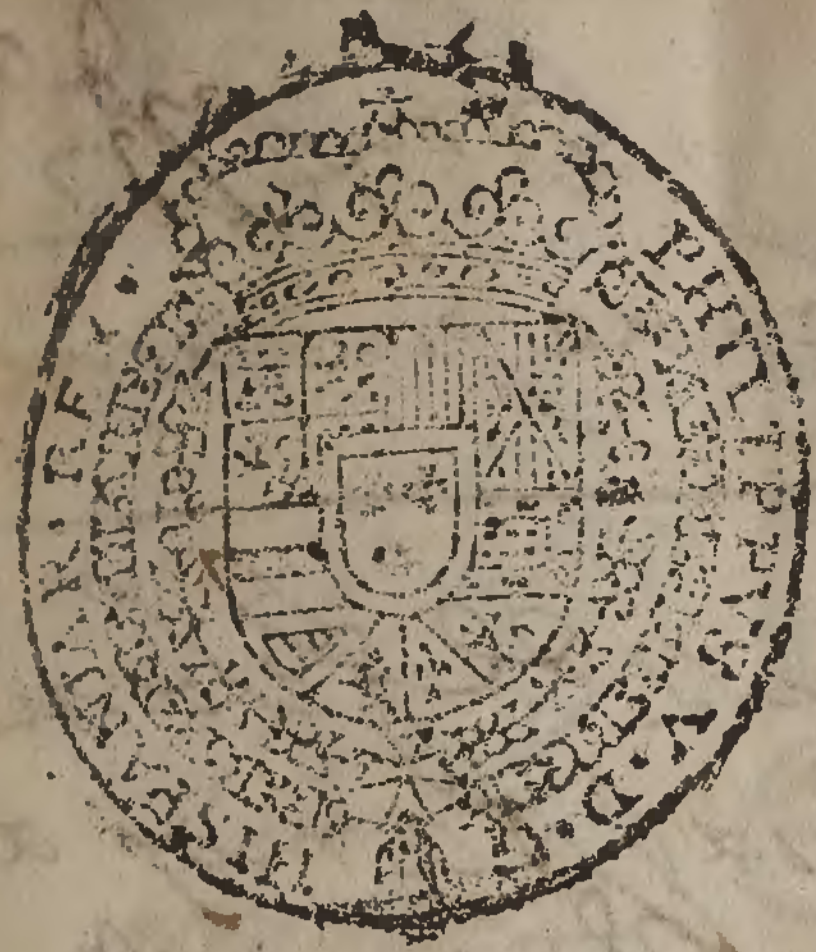 PHILIPPUS · V · D · G · HISPANIAR · REX ·